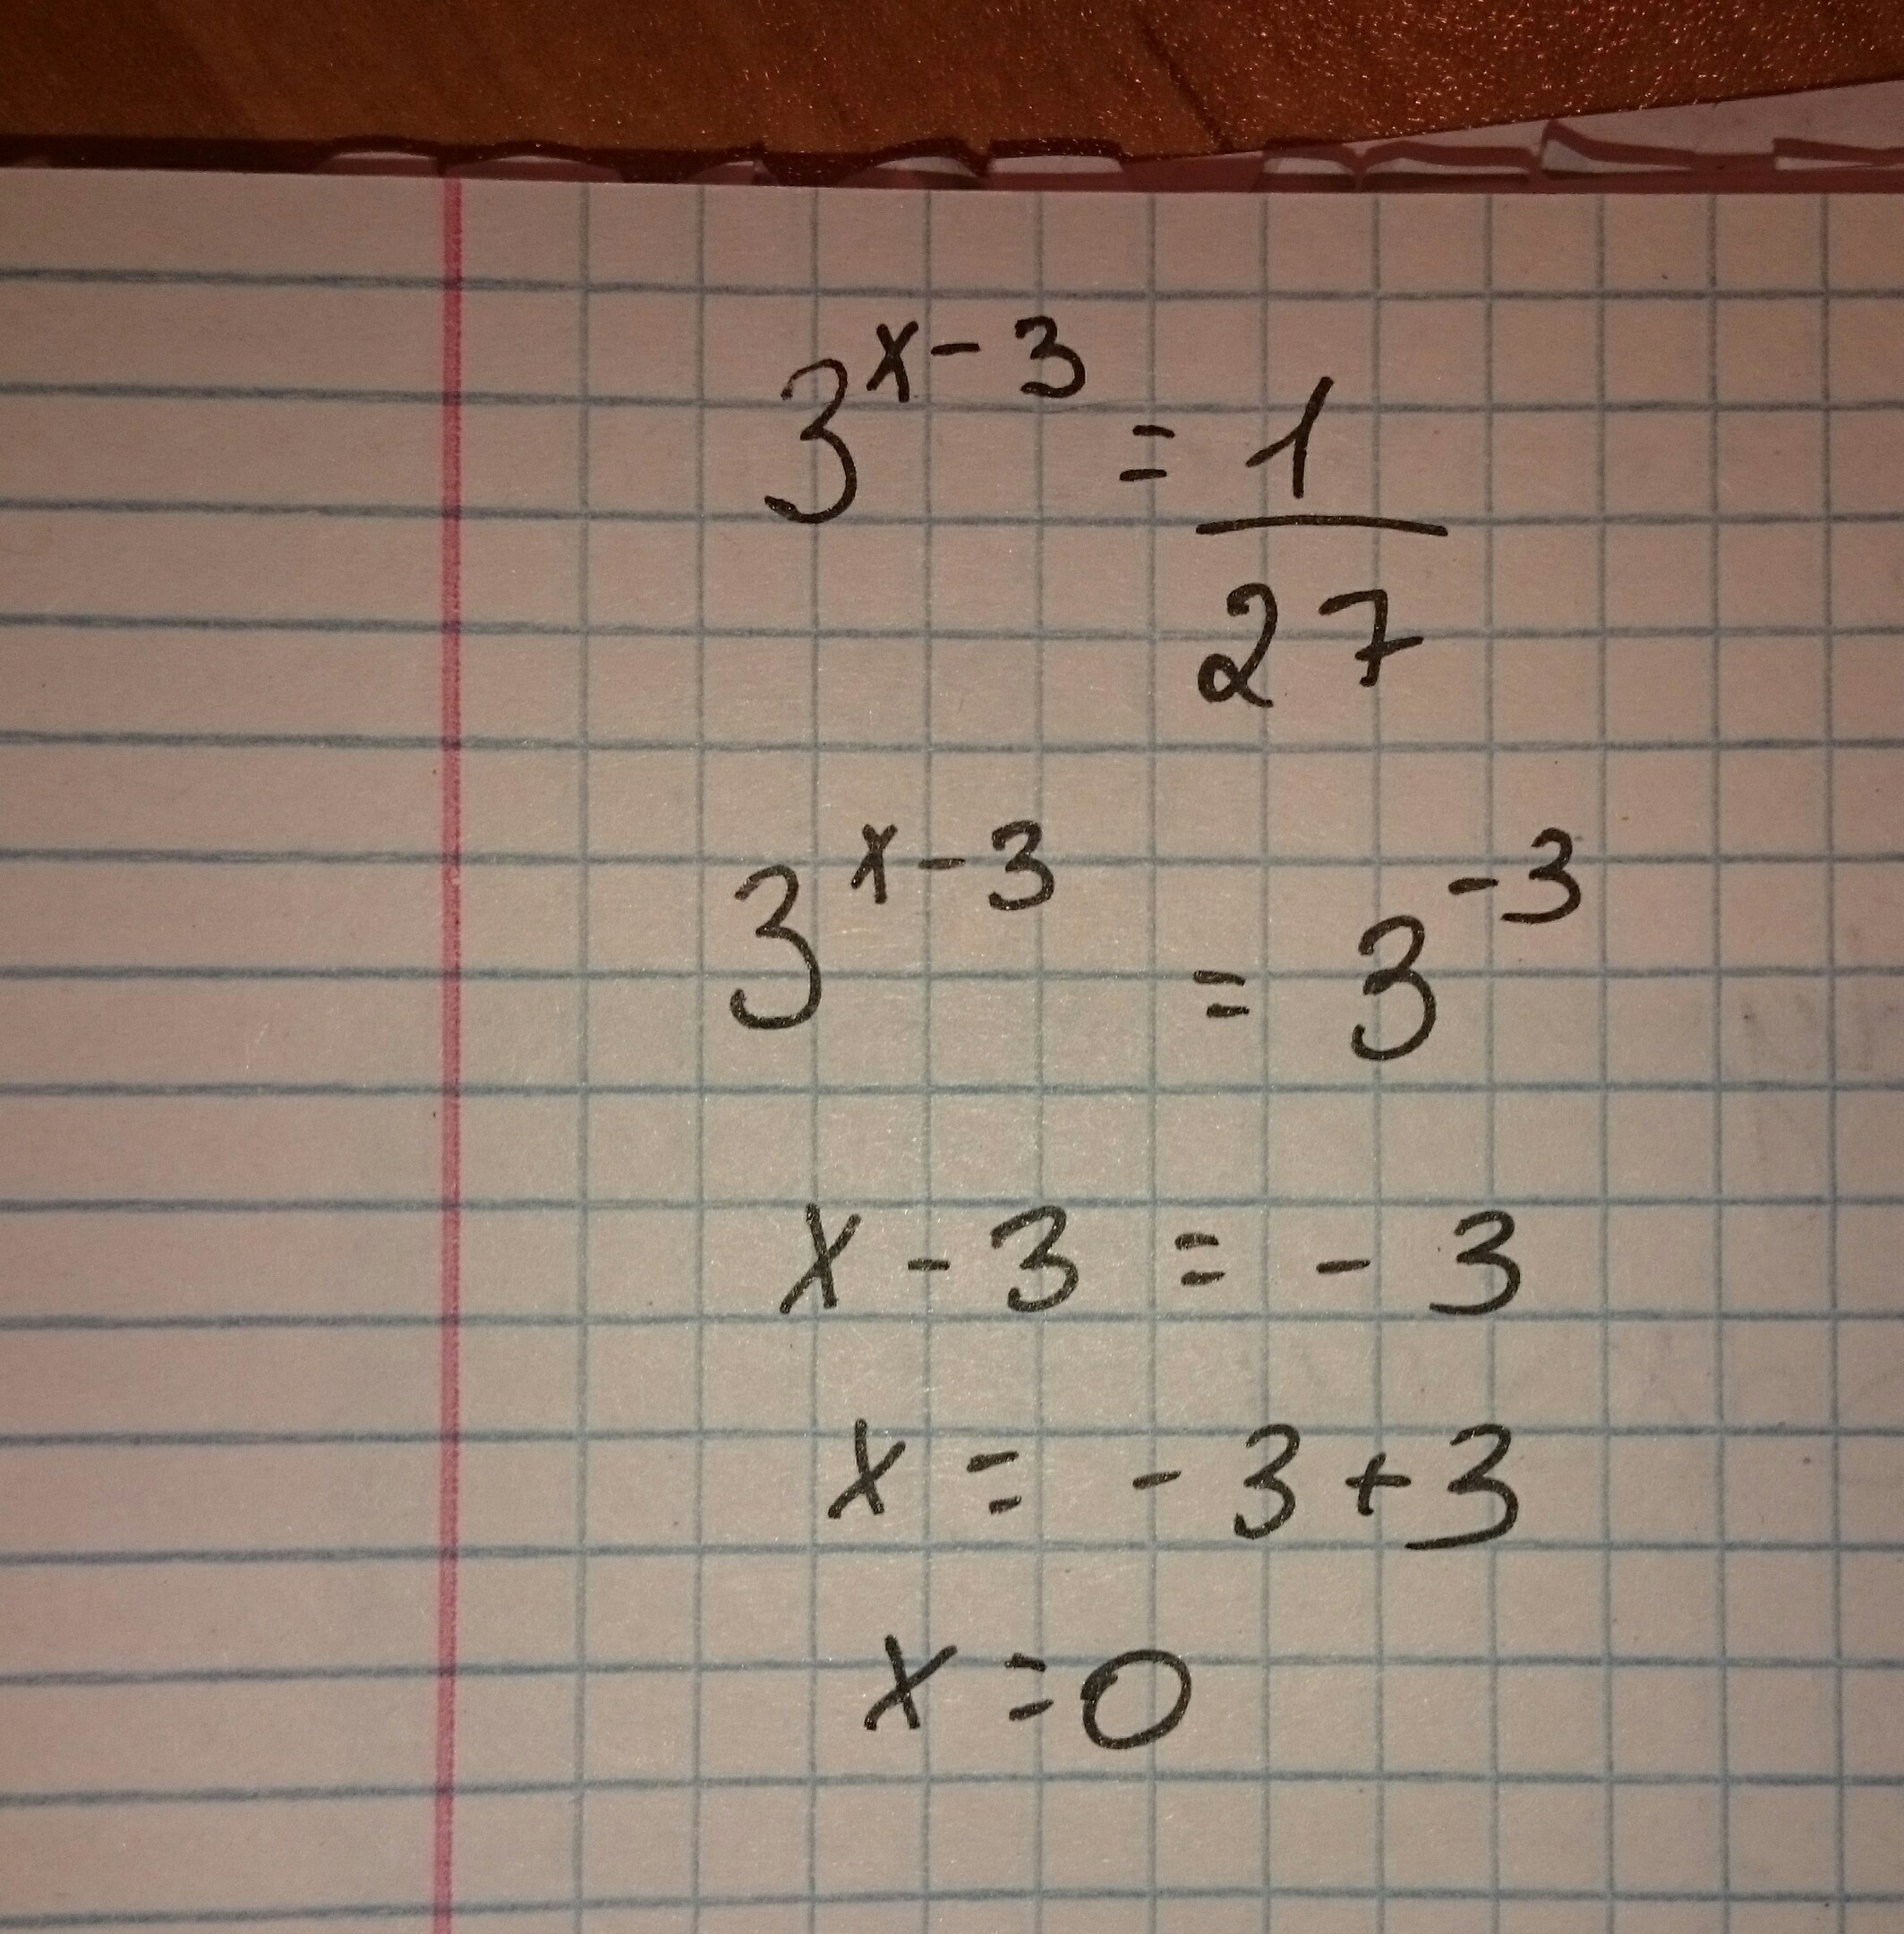 3^{x-3} = \frac{1}{27}
3^{x-3} = 3^{-3}
x - 3 = - 3
x = - 3 + 3
x = 0